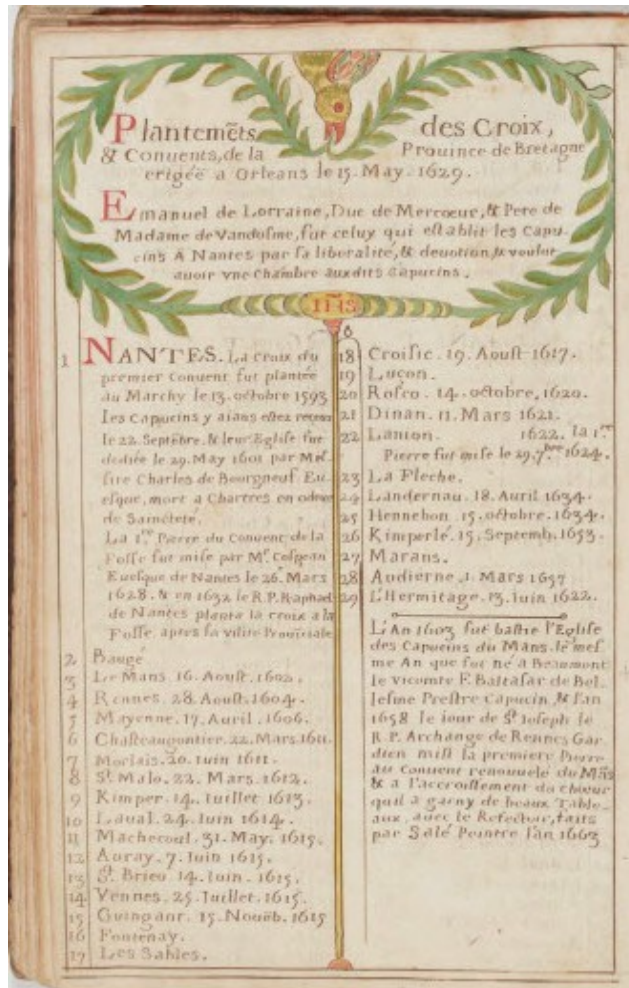 Plantemẽts des Croix,
& Conuents, de la Prouince de Bretagne
erigeë a Orleans le 15. May. 1629.
Emanuel de Lorraine, Duc de Mercoeur, & Pere de
Madame de Vandosme, fut celuy qui establit les Capu-
cins A Nantes par sa liberalité, & deuotion, & voulut
auoir vne Chambre auxdits Capucins.
IHS
1 NANTES. La Croix du
premier Conuent fut plantée
au Marchy le 13. octobre 1593
Les Capucins y aians estez receus
le 22. Septẽbre. & leur Eglise fut
dediée le 29. May 1601 par Mes-
sire Charles de Bourgneuf Eu-
esque, mort a Chartres en odeur
de Saincteté.
La 1.re Pierre du Conuent de la
Fosse fut mise par Mr. Cospean
Euesque de Nantes le 26. Mars
1628. & en 1632 le R.P. Raphael
de Nantes planta la croix a la
Fosse. apres sa visite Prouinciale
2 Baugé
3 Le Mans. 16. Aoust. 1602.
4 Rennes. 28. Aoust. 1604.
5 Mayenne. 17. Auril. 1606.
6 Chasteaugontier. 22. Mars. 1611.
7 Morlais. 20. Iuin 1611.
8 St. Malo. 22. Mars. 1612.
9 Kimper. 14. Iuillet 1613.
10 Laual. 24. Iuin 1614.
11 Machecoul. 31. May. 1615.
12 Auray. 7. Iuin 1615.
13 St. Brieu. 14. Iuin. 1615.
14 Vennes. 25. Iuillet. 1615.
15 Guingant. 15. Nouẽb. 1615
16 Fontenay.
17 Les Sables.
18 Croisic. 19. Aoust. 1617.
19 Luçon.
20 Rosco. 14. octobre. 1620.
21 Dinan. 11. Mars 1621.
22 Lanion. 1622. la 1.re
Pierre fut mise le 29. 7.bre 1624.
23 La Fleche.
24 Landernau. 18. Auril 1634.
25 Hennebon. 15. octobre. 1634.
26 Kimperlé. 15. Septemb. 1653.
27 Marans.
28 Audierne. 1. Mars 1657
29 L'Hermitage. 13. Iuin 1622.
L'An 1603 fut bastie l'Eglise
des Capucins du Mans. le mes-
me An que fut né a Beaumont
le vicomte F. Baltasar de Bel-
lesme Prestre Capucin, & l'an
1658 le iour de St. Ioseph le
R.P. Archange de Rennes Gar-
dien mist la premiere Pierre
au Conuent renouuelé du Mãs
& a l'accroissement du choeur
quil a garny de beaux Table-
aux, auec le Refectoir, faits
par Salé Peintre l'an 1663